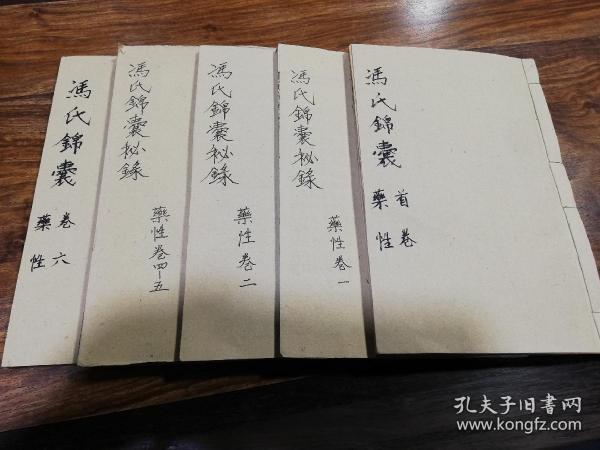 馮氏錦囊
首卷
藥性
馮氏錦囊秘錄
藥性卷一
馮氏錦囊秘錄
藥性卷二
馮氏錦囊秘錄
藥性卷四-五
馮氏錦囊
卷六
藥性
孔夫子旧书网
www.kongfz.com